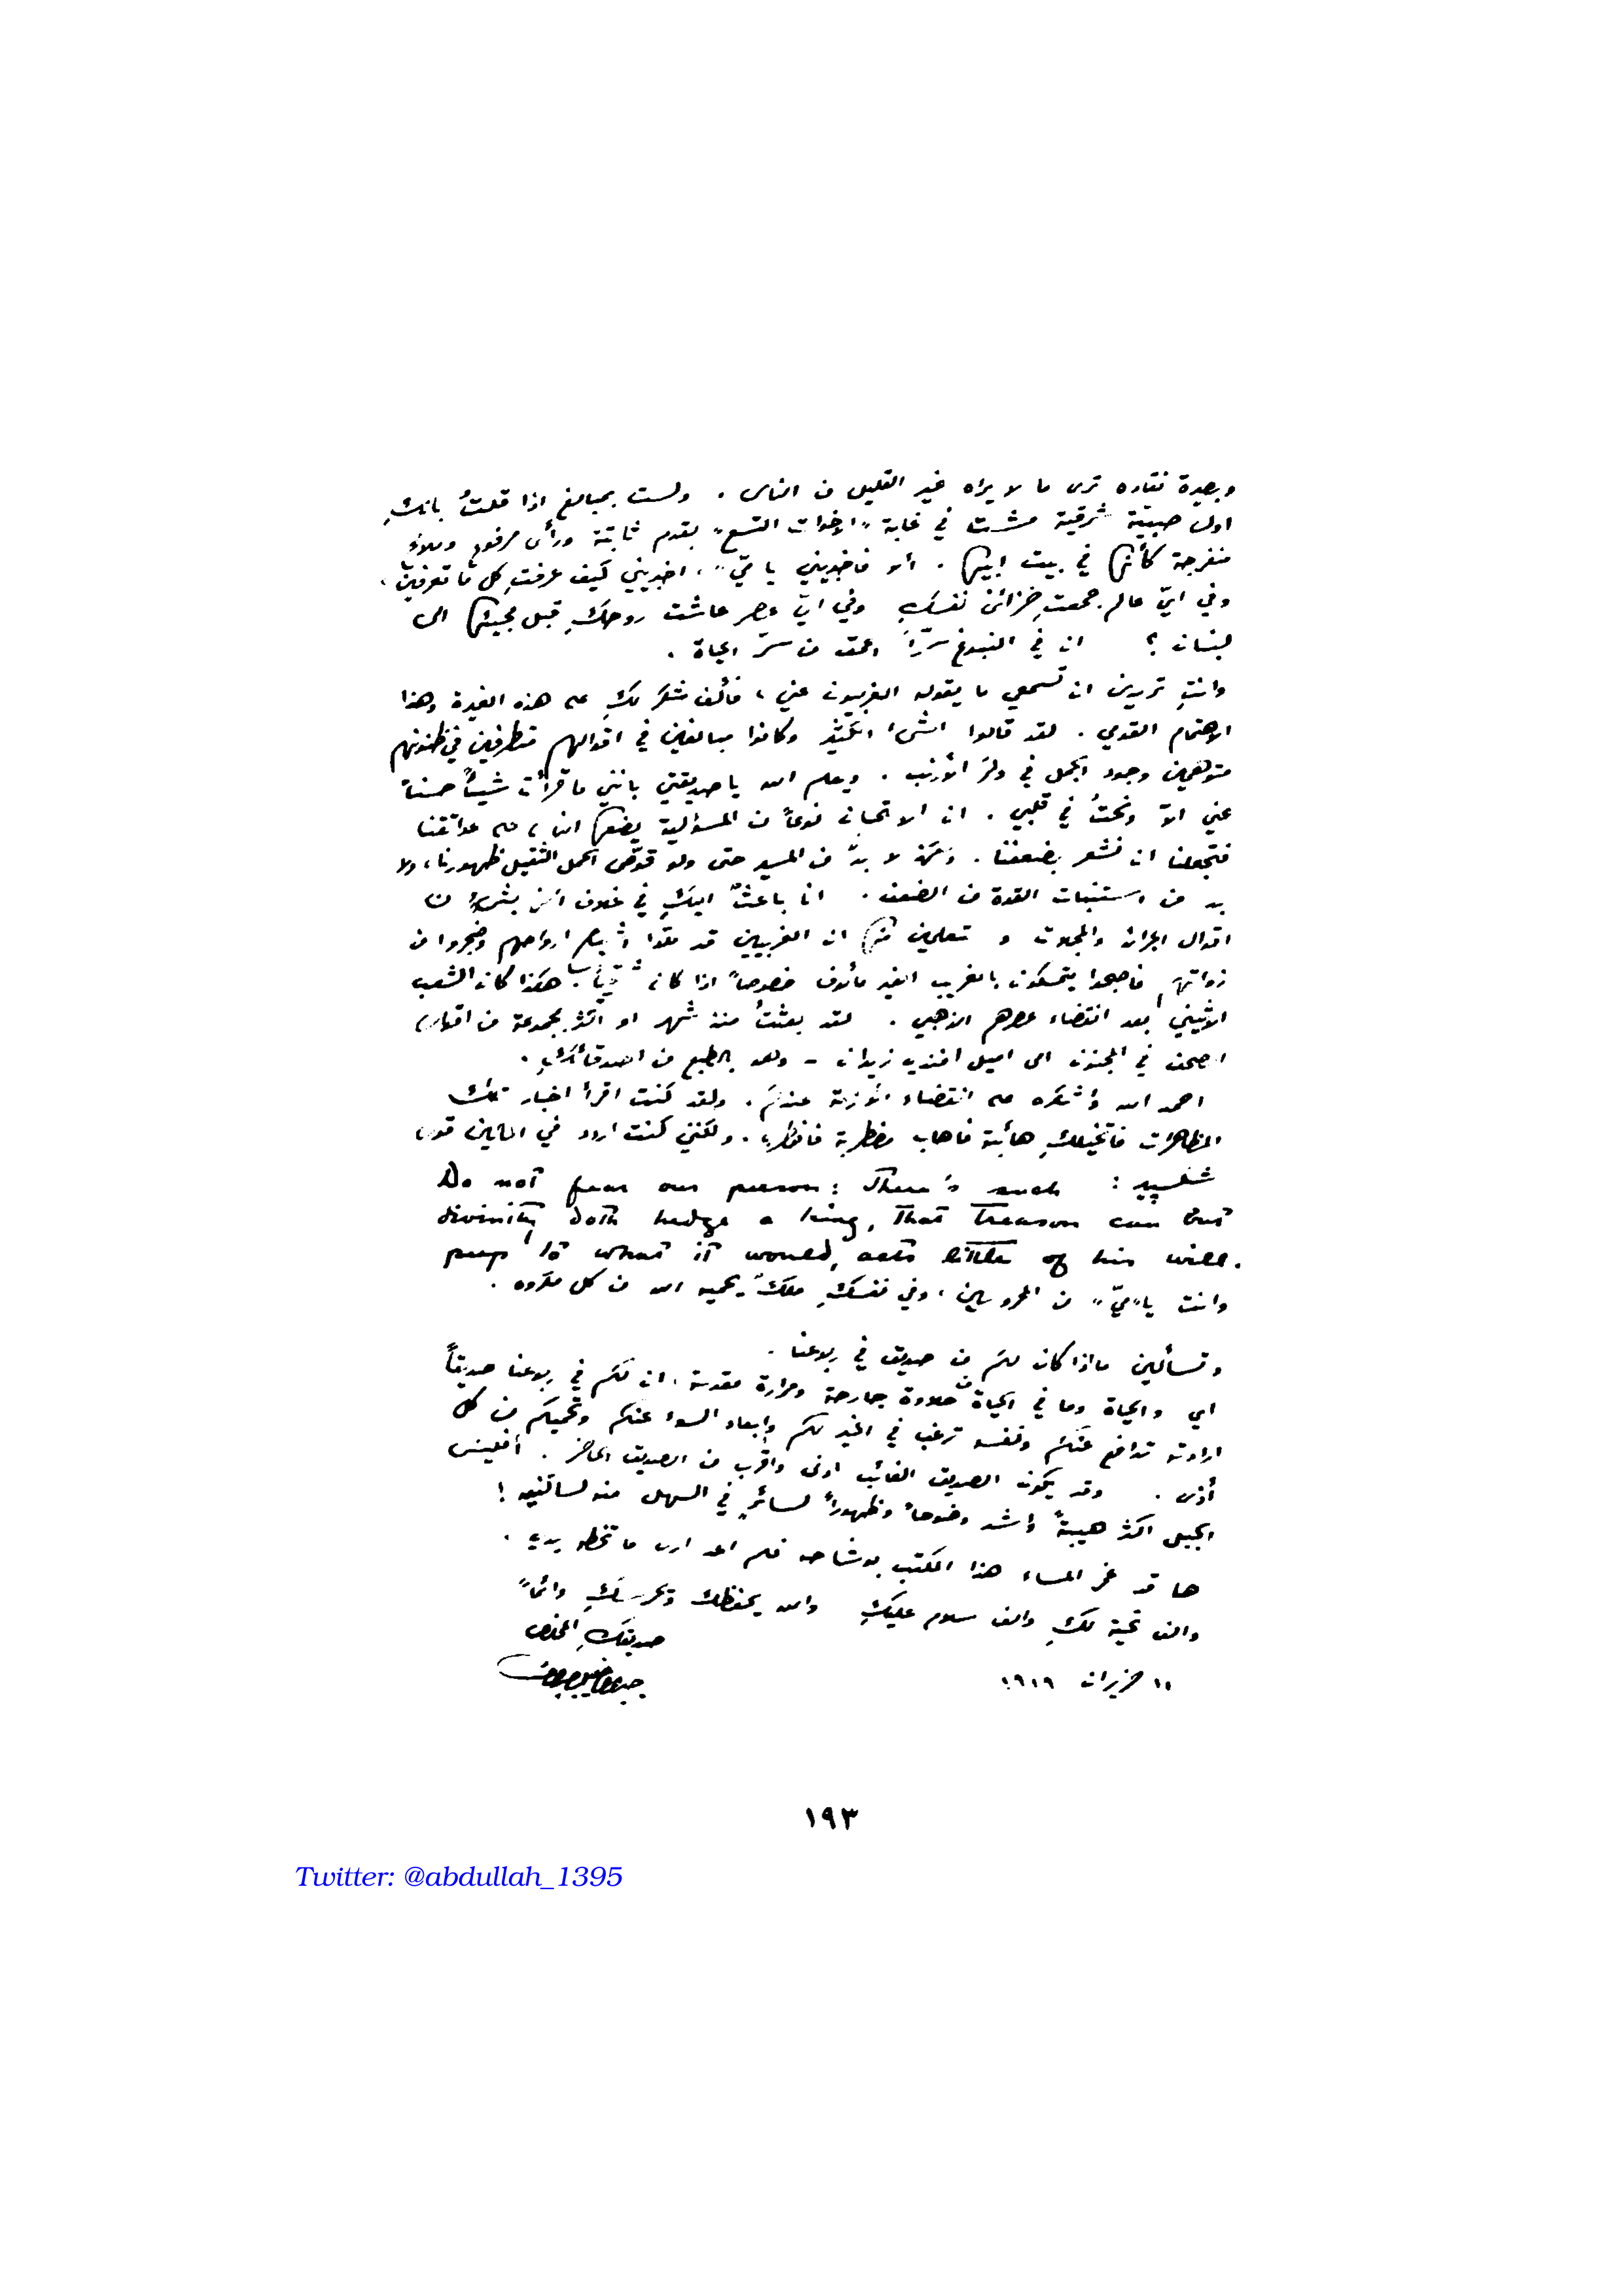 وبصيرة نقاده ترى ما لا يراه غير القليل من الناس . ولست بمبالغ اذا قلتُ بانكِ
اول صبيّة شرقية مشت في غابة «الاخوات التسع» بقدم ثابتة ورأس مرفوع وملامح
منفرجة كأنها في بيت ابيها . ألا فاخبريني يا ميّ، اخبريني كيف عرفتِ كل ما تعرفين،
وفي ايّ عالم جمعتِ خزائن نفسكِ وفي ايّ عصر عاشت روحكِ قبل مجيئها الى
لبنان ؟ ان في النبوغ سرّاً اعمق من سرّ الحياة .
وانتِ تريدين ان تسمعي ما يقوله الغربيون عني ، فألف شكر لكِ على هذه الغيرة وهذا
الاهتمام القومي . لقد قالوا الشيء الكثير وكانوا مبالغين في اقوالهم متطرفين في ظنونهم
متوهمين وجود الجمل في وكر الأرنب . ويعلم الله يا صديقتي بانني ما قرأت شيئاً حسناً
عني الاّ ونحتُ في قلبي . ان الاستحسان نوعاً من المسؤلية يضعها الناس على عواتقنا
فتجعلنا ان نشعر بضعفنا . ولكن لا بدّ من المسير حتى ولو قوّض الحمل الثقيل ظهورنا ، ولا
بد من استنبات القوة من الضعف . انا باعثٌ اليكِ في غلاف آخر بشيءٍ من
اقوال الجرائد والمجلات و ستعلمين منها ان الغربيين قد ملّوا أشباح ارواحهم وضجروا من
ذواتهم فاصبحوا يتمسكون بالغريب الغير مألوف خصوصاً اذا كان شرقياً . هكذا كان الشعب
الاثيني بعد انقضاء عصرهم الذهبي . لقد بعثتُ منذ شهر او اكثر بمجموعة من اقوال
الصحف في المجنون الى اميل افندي زيدان - وهو بالطبع من اصدقائكِ .
احمد الله وأشكره على انقضاء الأزمة عندكم . ولقد كنت اقرأ اخبار تلك
المظاهرات فاتخيّلكِ هائبة فاهاب مضطربة فاضطرب . ولكنني كنت اردد في الحالين قول
شكسبير : Do not fear our person: There's such
divinity doth hedge a king, That Treason can but
peep to what it would, acts little of his will.
وانت يا «ميّ» من المحروسين ، وفي نفسكِ ملكٌ يحميه الله من كل مكروه .
وتسألين ما اذا كان لكم من صديق في ربوعنا .
اي والحياة وما في الحياة من حلاوة جارحة ومرارة مقدسة ، ان لكم في ربوعنا صديقاً
ارادته تدافع عنكم ونفسه ترغب في الخير لكم وإبعاد السوء عنكم وتحميكم من كل
أذى . وقد يكون الصديق الغائب ادنى واقرب من الصديق الحاضر . أفليس
الجبل اكثر هيبةً وأشد وضوحاً وظهوراً لسائرٍ في السهل منه لساكنيه !
ها قد غمر المساء هذا المكتب بوشاحه فلم اعد ارى ما تخطه يدي .
والف تحية لكِ والف سلام عليكِ والله يحفظك ويحرسكِ دائماً
صديقكِ المخلص
جبران خليل جبران
١١ حزيران ١٩١٩
١٩٣
Twitter: @abdullah_1395